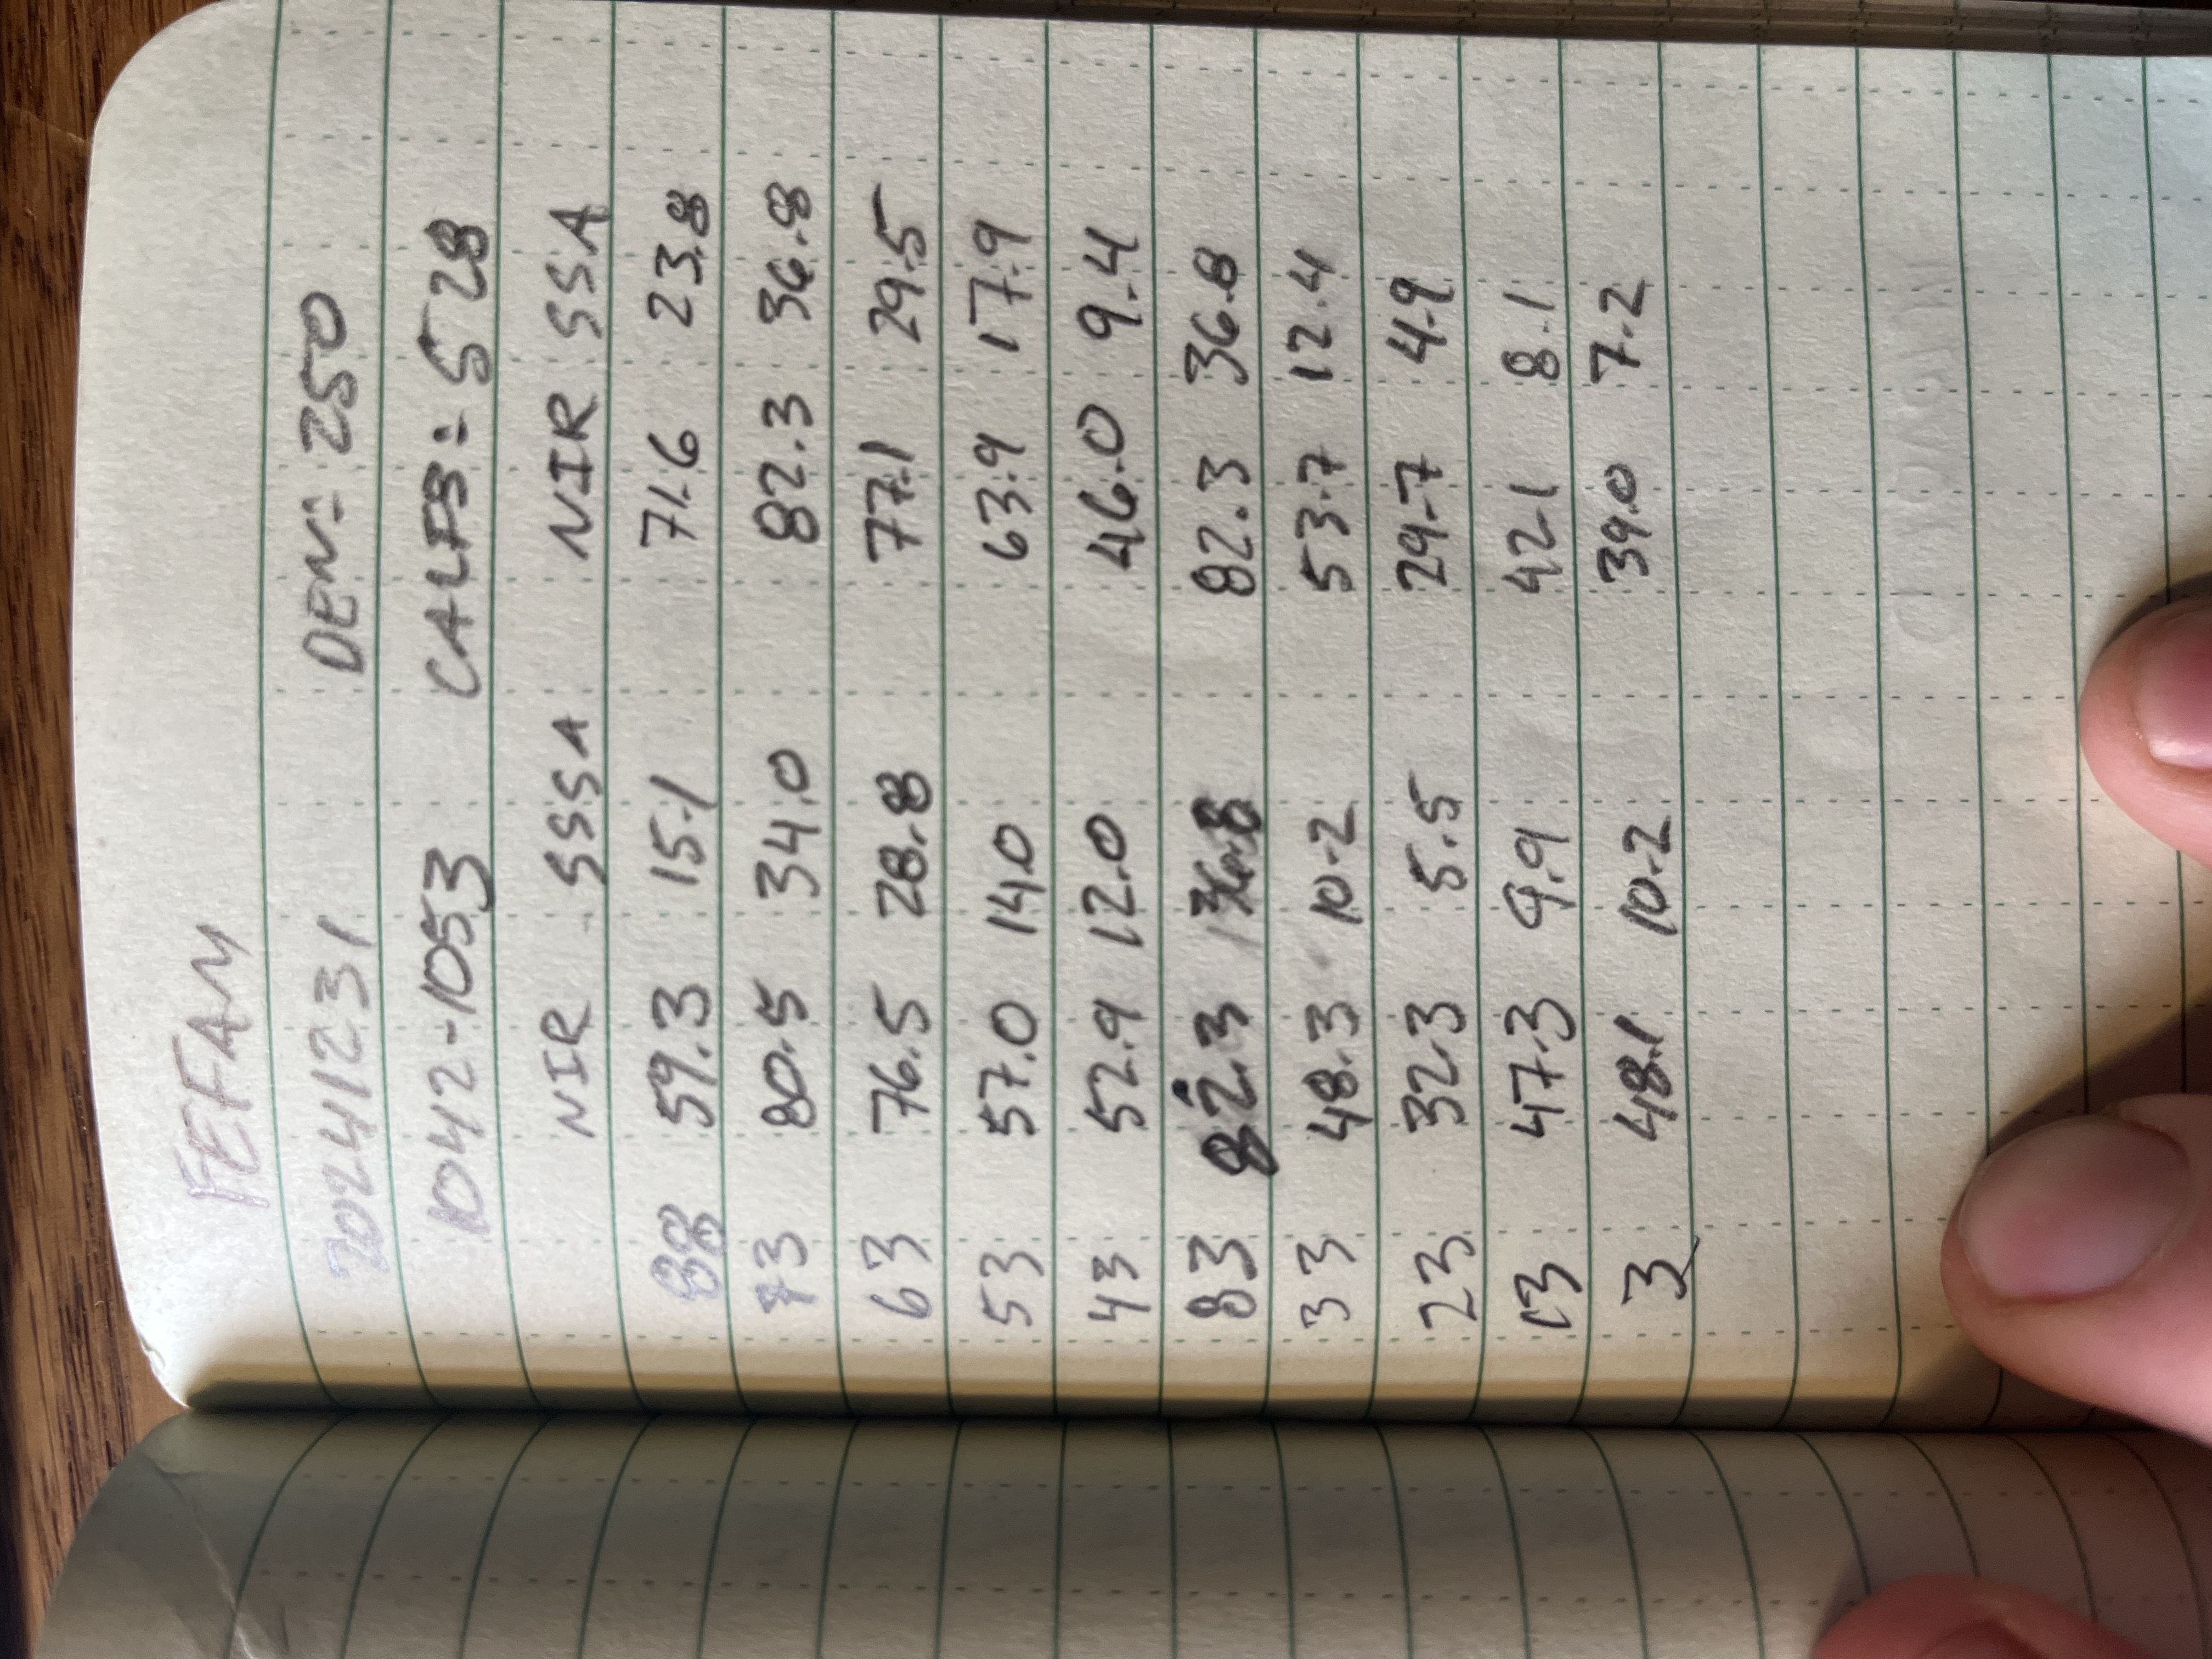 FEFAM
20241231 DEN= 250
1042-1053 CALFS= 528
NIR SSSA NIR SSA
88 59.3 15.1 71.6 23.8
73 80.5 34.0 82.3 36.8
63 76.5 28.8 77.1 29.5
53 57.0 14.0 63.9 17.9
43 52.9 12.0 46.0 9.4
83 82.3 36.8 82.3 36.8
33 48.3 10.2 53.7 12.4
23 32.3 5.5 29.7 4.9
13 47.3 9.9 42.1 8.1
3 48.1 10.2 39.0 7.2